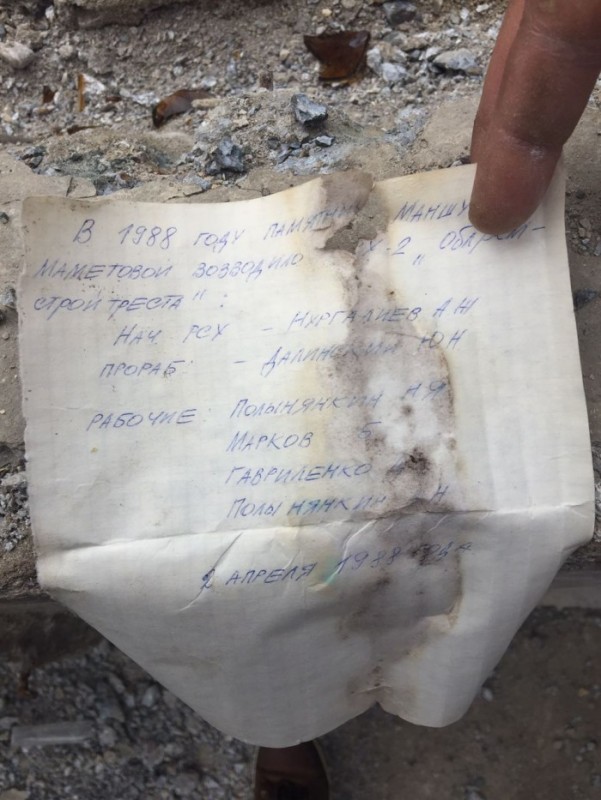 В 1988 ГОДУ ПАМЯТНИК МАНШУ
МАМЕТОВОЙ ВОЗВОДИЛО Х-2 "
СТРОЙТРЕСТА":
НАЧ. РСХ – НУРГАЛИЕВ А Ж
ПРОРАБ: – ДАЛИНСКИЙ Ю Н
РАБОЧИЕ ПОЛЫНЯНКИН Н Я
МАРКОВ Б
ГАВРИЛЕНКО
ПОЛЫНЯНКИН Н
2 АПРЕЛЯ 1988 ГОДА